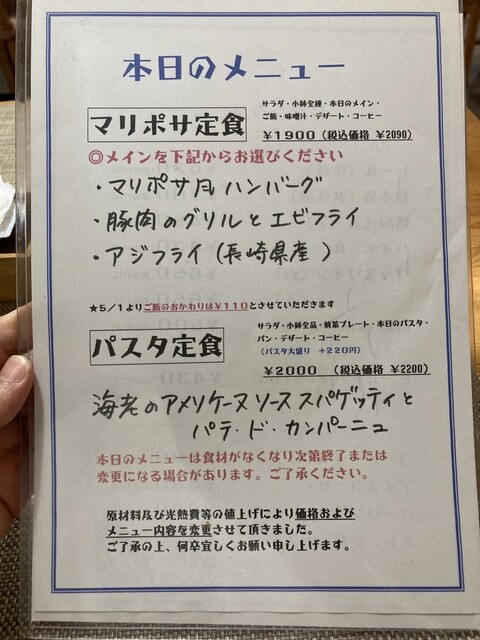 本日のメニュー
マリポサ定食
サラダ・小鉢全種・本日のメイン・
ご飯・味噌汁・デザート・コーヒー
¥1900（税込価格 ¥2090）
◎メインを下記からお選びください
・マリポサ風ハンバーグ
・豚肉のグリルとエビフライ
・アジフライ（長崎県産 ）
★5/1よりご飯のおかわりは¥110とさせていただきます
パスタ定食
サラダ・小鉢全品・前菜プレート・本日のパスタ・
パン・デザート・コーヒー
（パスタ大盛り ＋220円）
¥2000 （税込価格 ¥2200）
海老のアメリケーヌソーススパゲッティと
パテ・ド・カンパーニュ
本日のメニューは食材がなくなり次第終了または
変更になる場合があります。ご了承ください。
原材料及び光熱費等の値上げにより価格および
メニュー内容を変更させて頂きました。
ご了承の上、何卒宜しくお願い申し上げます。